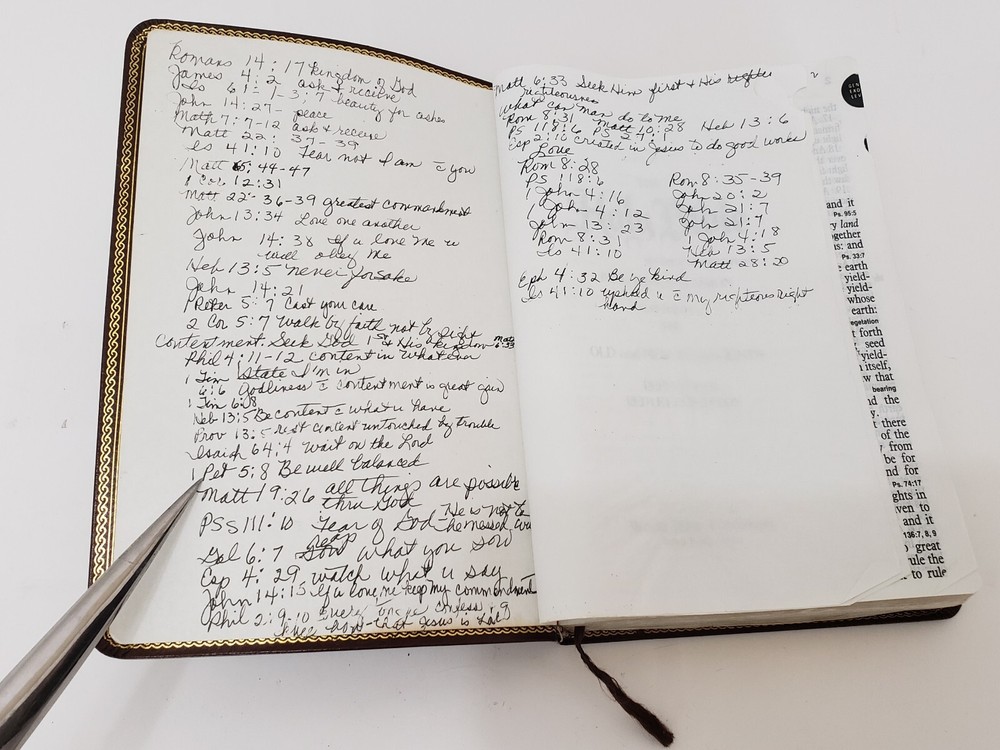 Romans 14:17 kingdom of God
James 4:2 ask & receive
Is 61-1-3; 7 beauty for ashes
John 14:27- peace
Math 7:7-12 ask & receive
Matt 22: 37-39
Is 41:10 Fear not I am c̄ you
Matt 5:44-47
1 Cor 12:31
Matt 22- 36-39 greatest commandment
John 13:34 Love one another
John 14:38 If u love Me u
will obey me
Heb 13:5 never forsake
John 14:21
1 Peter 5:7 Cast your care
2 Cor 5:7 Walk by faith not by sight
Contentment: Seek God 1st & His kingdom Matt 6:33
Phil 4:11-12 content in whatever
state I'm in
1 Tim 6:6 Godliness c̄ contentment is great gain
1 Tim 6:8
Heb 13:5 Be content c̄ what u have
Prov 13:5 rest content untouched by trouble
Isaiah 64:4 Wait on the Lord
1 Pet 5:8 Be well balanced
Matt 19:26 all things are possible
thru God
PSs 111:10 Fear of God - He is not to
be messed w
reap
Gal 6:7 Sow what you sow
Esp 4:29 watch what u say
John 14:15 If u love me keep my commandment
Phil 2:9,10 every tongue confess
that Jesus is Lord
Matt 6:33 Seek Him first & His rights
righteousness
What can man do to me
Rom 8:31 Matt 10:28 Heb 13:6
PS 118:6 PS 27:1
Esp 2:10 created in Jesus to do good works
Love
Rom 8:28
PS 118:6 Rom 8:35-39
1 John 4:16 John 20:2
1 John 4:12 John 21:7
John 13:23 John 21:7
Rom 8:31 1 John 4:18
Is 41:10 Heb 13:5
Matt 28:20
Eph 4:32 Be ye kind
Is 41:10 uphold u c̄ my righteous right
hand
2
GEN
EXO
LEV
and it
Ps. 95:5
ry land
ogether
is: and
Ps. 33:7
e earth
yield-
yield-
whose
earth:
egetation
t forth
seed
yield-
itself,
w that
bearing
nd the
y.
t there
of the
y from
be for
nd for
Ps. 74:17
ghts in
ven to
and it
136:7, 8, 9
o great
rule the
to rule